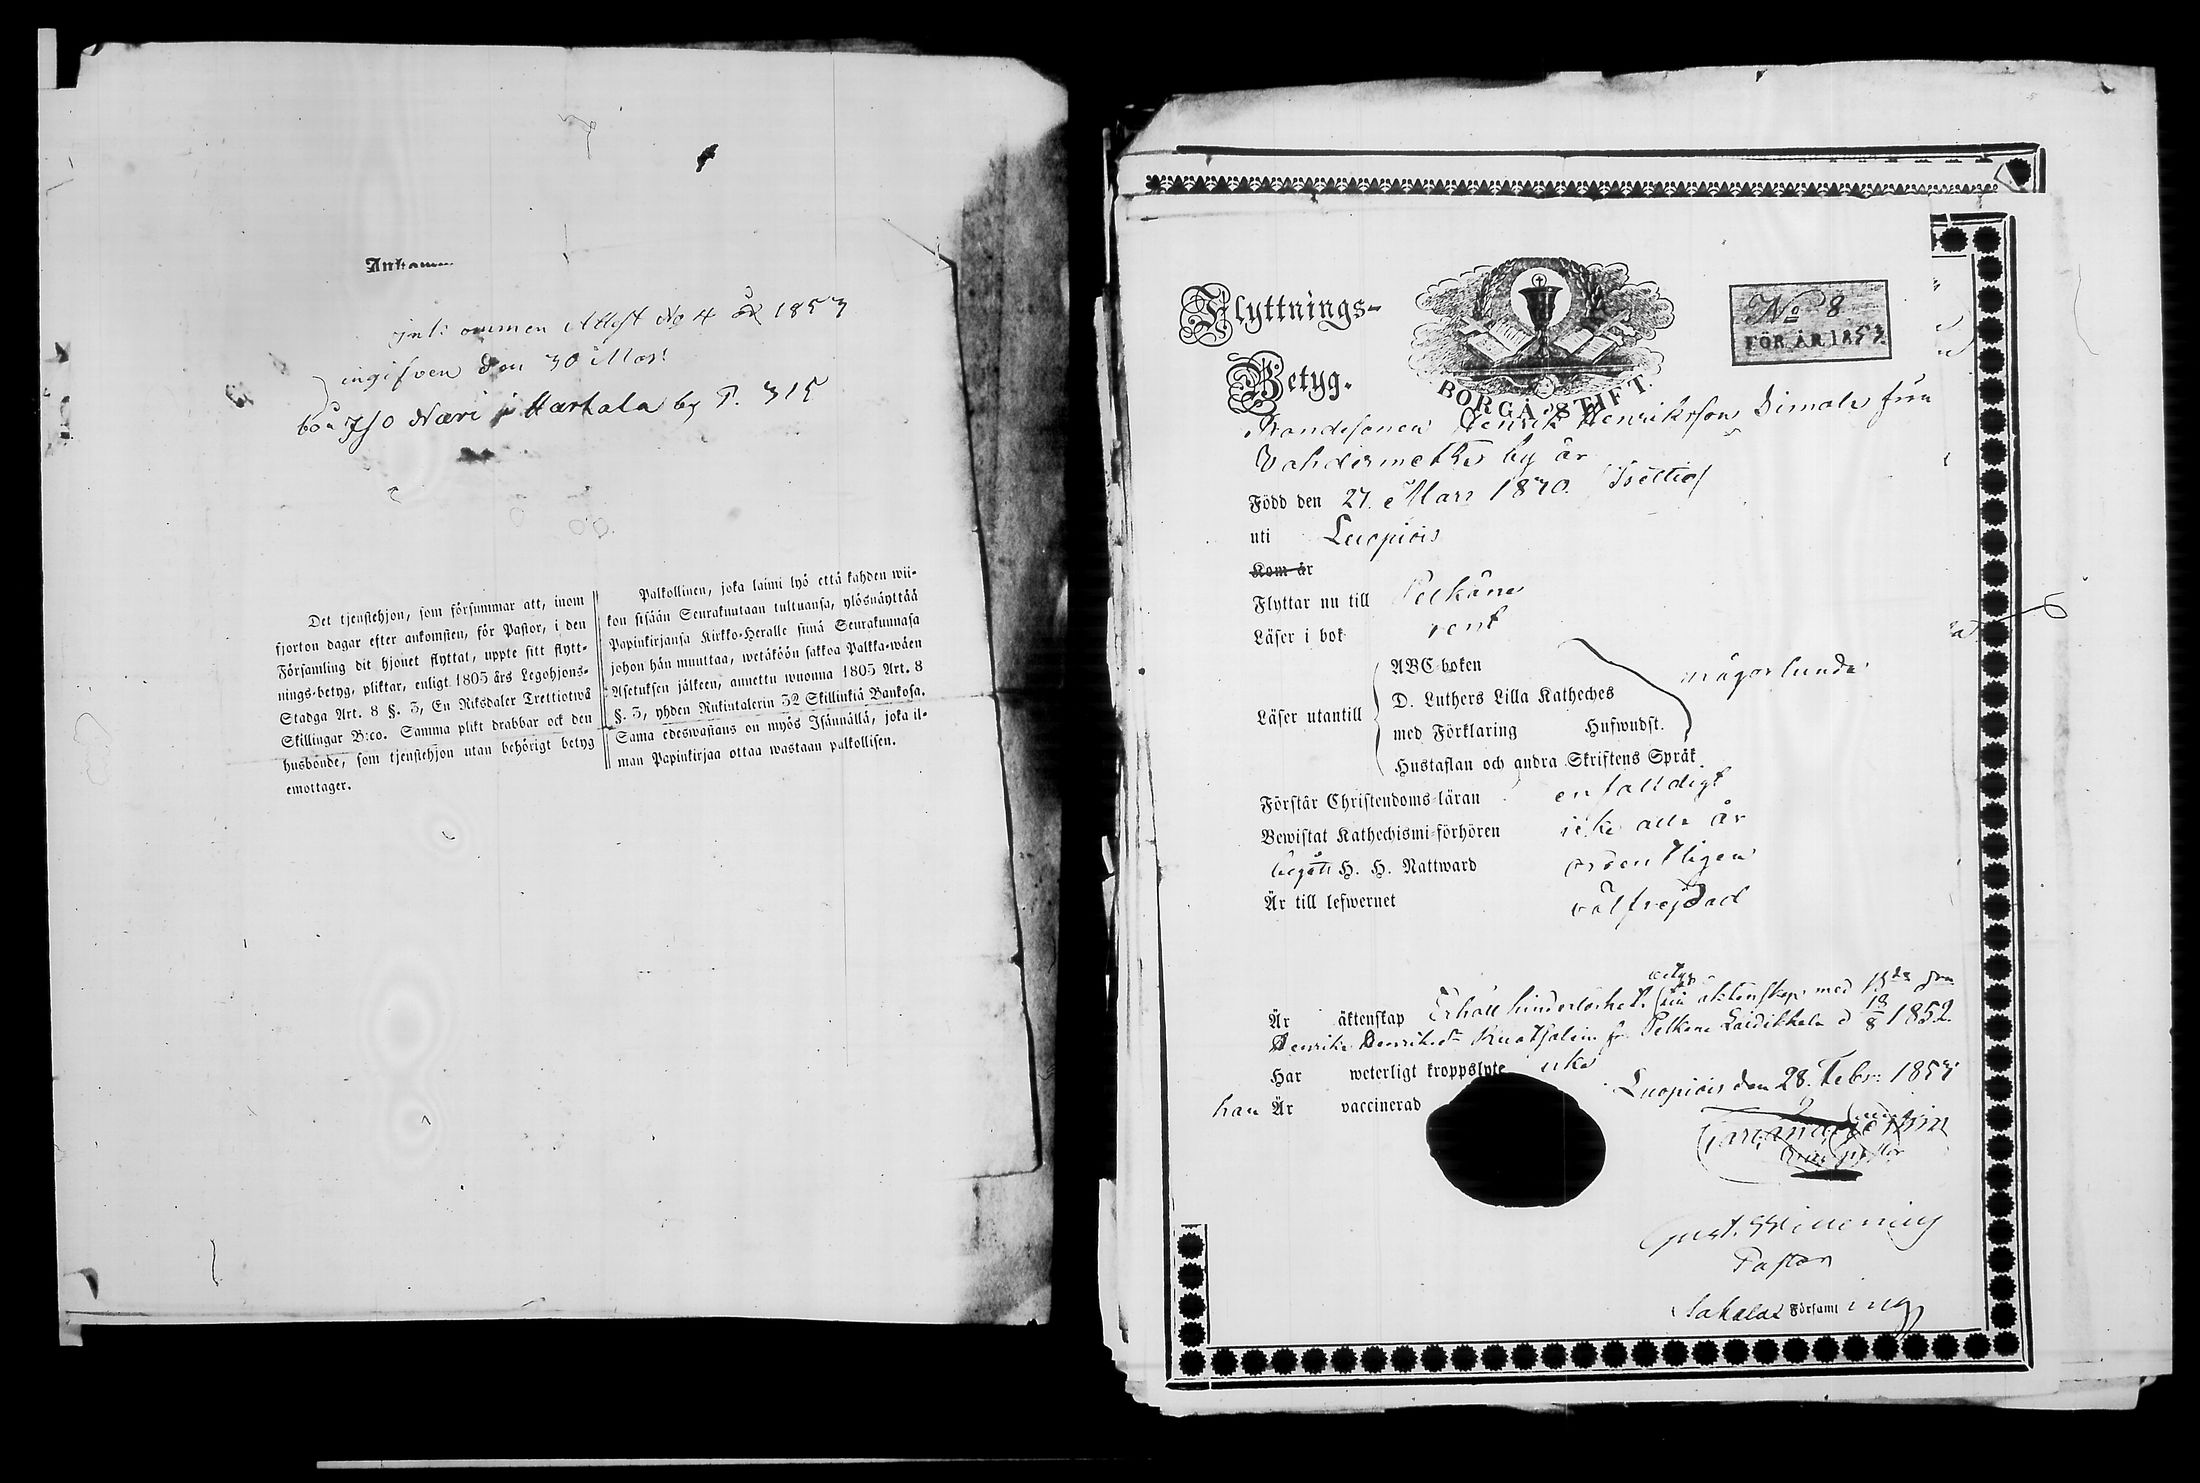 Ankom
inkommen Attest No 4 år 1853
ingifven den 30 Mars
bör Iso Næri i Harhala by P. 315
Det tjenstehjon, som försummar att, inom
fjorton dagar efter ankomsten, för Pastor, i den
Församling dit hjonet flyttat, uppte sitt flytt-
nings-betyg, pliktar, enligt 1805 års Legohjons-
Stadga Art. 8 §. 3, En Riksdaler Trettiotwå
Skillingar B:co. Samma plikt drabbar ock den
husbonde, som tjenstehjon utan behörigt betyg
emottager.
Palkollinen, joka laimi lyö että kahden wii-
kon sisään Seurakuutaan tultuansa, ylösnäyttää
Papinkirjansa Kirkko-Heralle siinä Seurakunnasa
johon hän muuttaa, wetäköön sakkoa Palkka-wäen
Asetuksen jälkeen, annettu wuonna 1805 Art. 8
§. 3, yhden Rukintalerin 32 Skillinkiä Bankosa.
Sama edeswastaus on myös Isännällä, joka il-
man Papinkirjaa ottaa wastaan palkollisen.
Flyttnings-
Betyg.
BORGÅ STIFT
No 8
FÖR ÅR 1853
Bondesonen Henrik Henriksson Simola från
by är
Född den 27 Mars 1830
uti Luopiois
Kom år
Flyttar nu till Pelkäne
Läser i bok rent
Läser utantill
ABC-boken
D. Luthers Lilla Katheches
med Förklaring Hufwudst.
Hustaflan och andra Skriftens Språk
någorlunda
Förstår Christendoms-läran enfalldigt
Bewistat Kathechismi-förhören icke alla år
begått H. H. Nattward ordentligen
Är till lefwernet välfrejdad
Är äktenskap Erhöll hinderlöshets betyg till äktenskap med
Henrika Henriksdr fr. Pelkäne Laidikkala d 18/8 1852.
Har weterligt kroppslyte icke
han Är vaccinerad
Luopiois den 28. Febr: 1853
Gust.
Pastor
Sahalax Församling